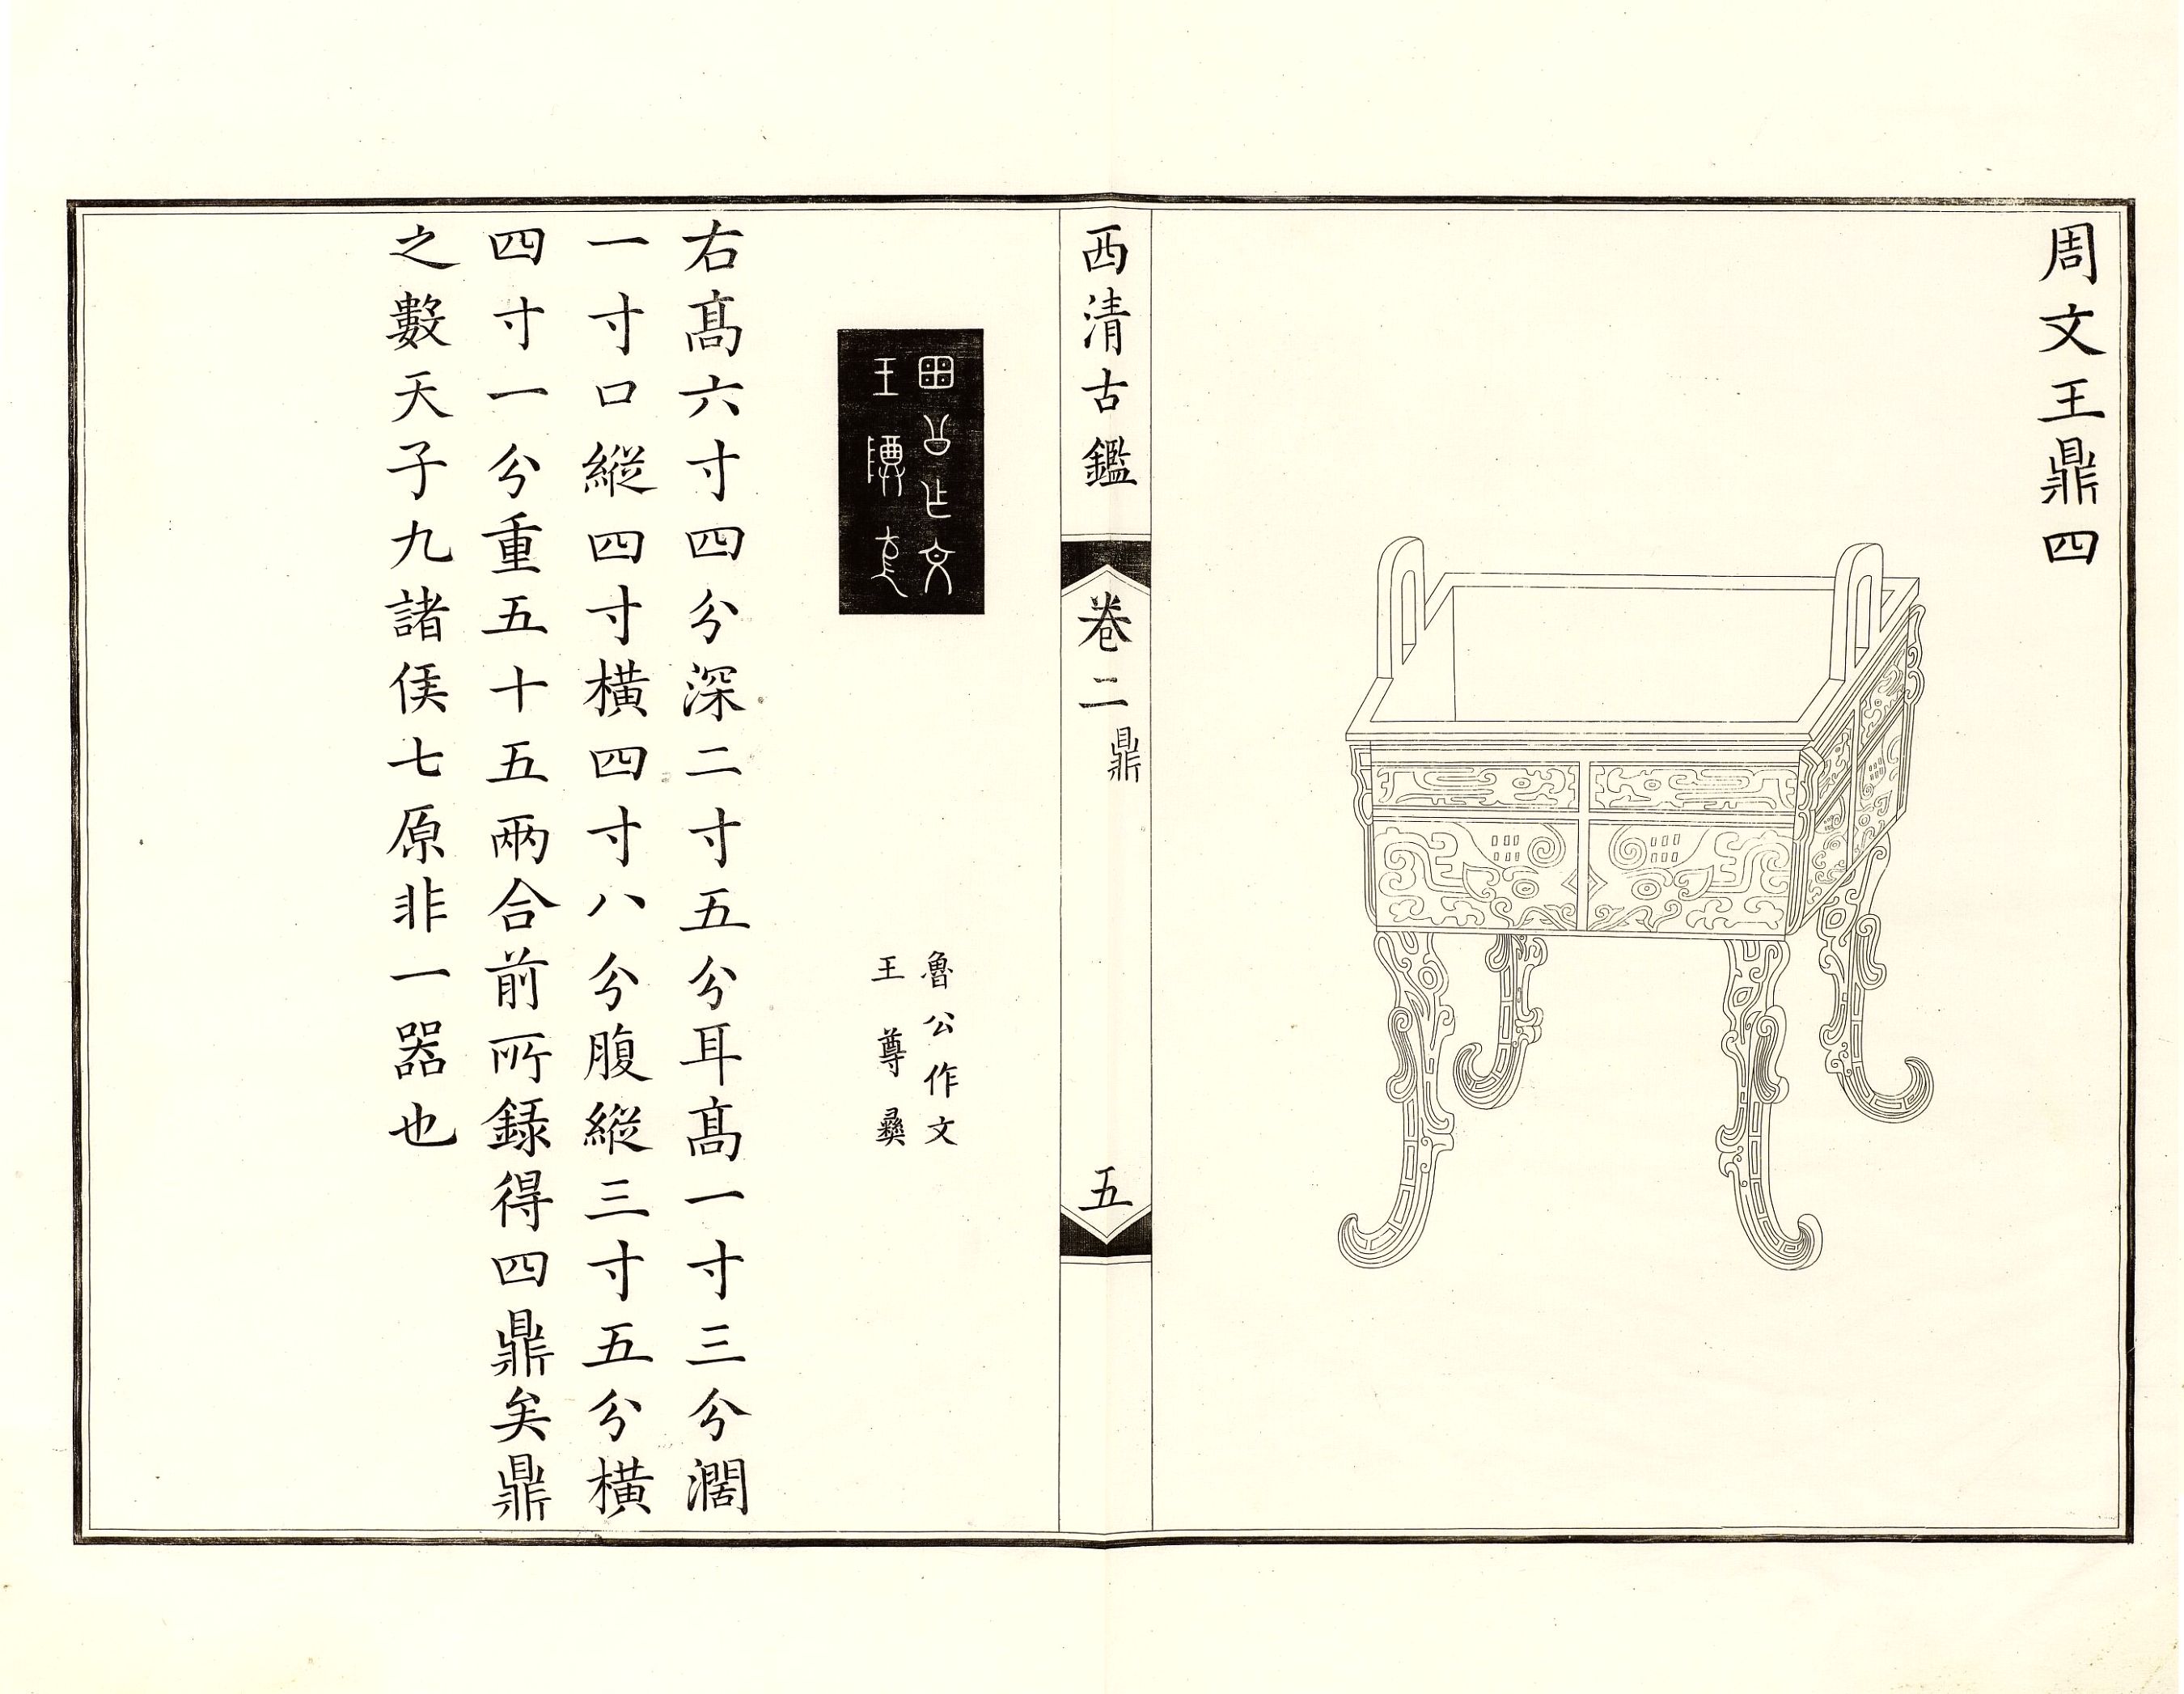 周文王鼎四
西清古鑑
卷二
鼎
五
魯公作文
王尊彝
右髙六寸四分深二寸五分耳髙一寸三分濶
一寸口縱四寸橫四寸八分腹縱三寸五分橫
四寸一分重五十五兩合前所録得四鼎矣鼎
之數天子九諸侯七原非一器也